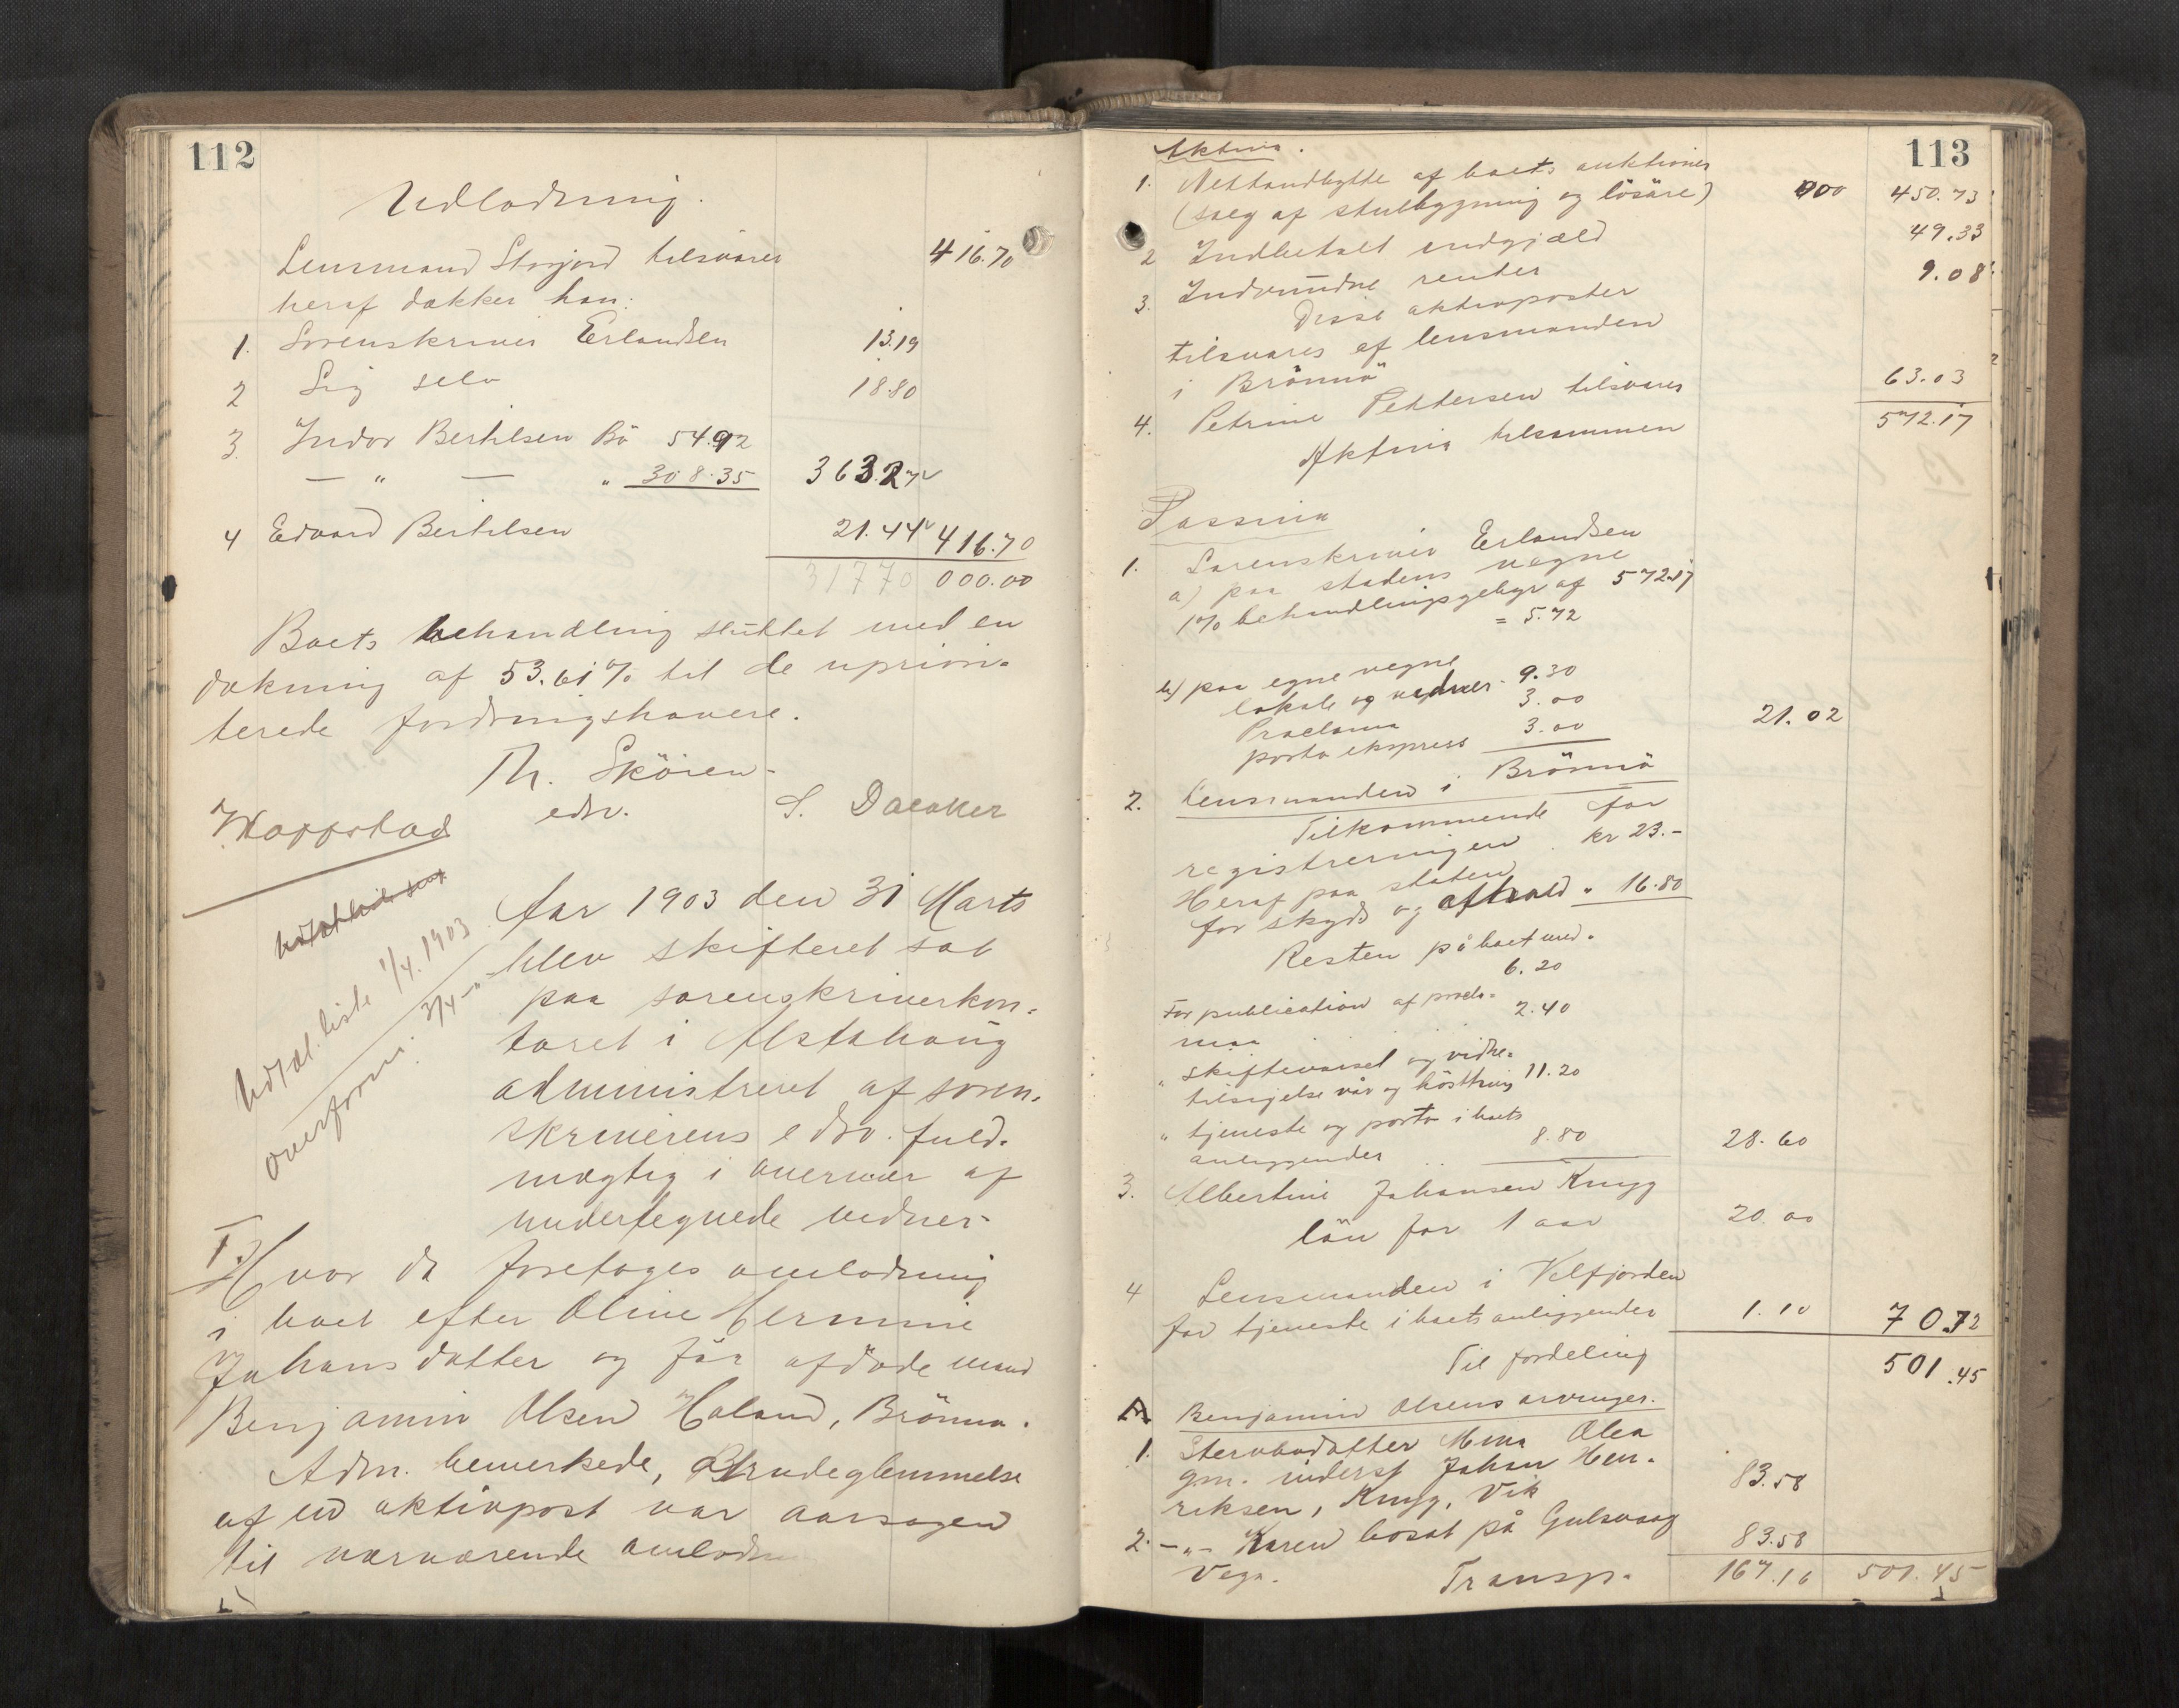 112
Udlodning.
Lensmand Storjord tilsvarer 416.70
heraf dækker han:
1. Sorenskriver Erlandsen 13.19
2 Sig selv 18.80
3. Indor Bertilsen Bö 54.92
— " — " 308.35 363.27
4 Edvard Bertilsen 21.44 416.70
31770 000.00
Boets behandling sluttet med en
dækning af 53.61% til de uprior-
terede fordringshavere.
Th. Sköien
edsv.
S. Daeaker
Kloppstad
Udtal. liste 1/4. 1903
overform. 3/4 - "
Aar 1903 den 31 Marts
blev skifteret sat
paa sorenskriverkon-
toret i Alstahoug
administreret af soren-
skriverens edsv. fuld-
mægtig i overvær af
undertegnede vidner-
I. Hvor da foretoges omlodning
i boet efter Oline Hermine
Johansdatter og før afdöde mand
Benjamin Olsen Haland, Brönnö.
Adm. bemerkede, at forudeglemmelse
af en aktivpost var aarsagen
til nærværende omlodn
113
Aktiva.
1. Nettoudbytte af boets auktioner
(salg af stuebygning og lösöre) 000 450.73
2 Indbetalt endgjæld 49.33
3. Indvundne renter 9.08
Disse aktivposter
tilsvares af lensmanden
i Brönnö
4. Petrine Pettersen tilsvarer 63.03
Aktiva tilsammen 572.17
Passiva
1. Sorenskriver Erlandsen
a) paa statens vegne
1% behandlingsgebyr af 572.17
= 5.72
b) paa egne vegne
lokale og vidner 9.30
Proclama 3.00
porto ekspress 3.00 21.02
2. Lensmanden i Brönnö
Tilkommende for
registreringen kr 23.-
Heraf paa staten
for skyds og ophold " 16.80
Resten på boet med.
6.20
For publication af procla-
ma 2.40
" skiftevarsel og vidne-
tilsigelse vår og hösttning 11.20
" tjeneste og porto i boets
anliggender 8.80 28.60
3. Albertine Johansen Knyg
lön for 1 aar 20.00
4 Lensmanden i Velfjorden
for tjeneste i boets anliggender 1.10 70.72
Til fordeling 501.45
A Benjamin Olsens arvinger.
1. Stervbodatter Mina Olea
gm. inderst Johan Hen-
riksen, Knyg, Vik 83.58
2. - " - Karen bosat på Gulsvaag
Vega. 83.58
Transp. 167.16 501.45